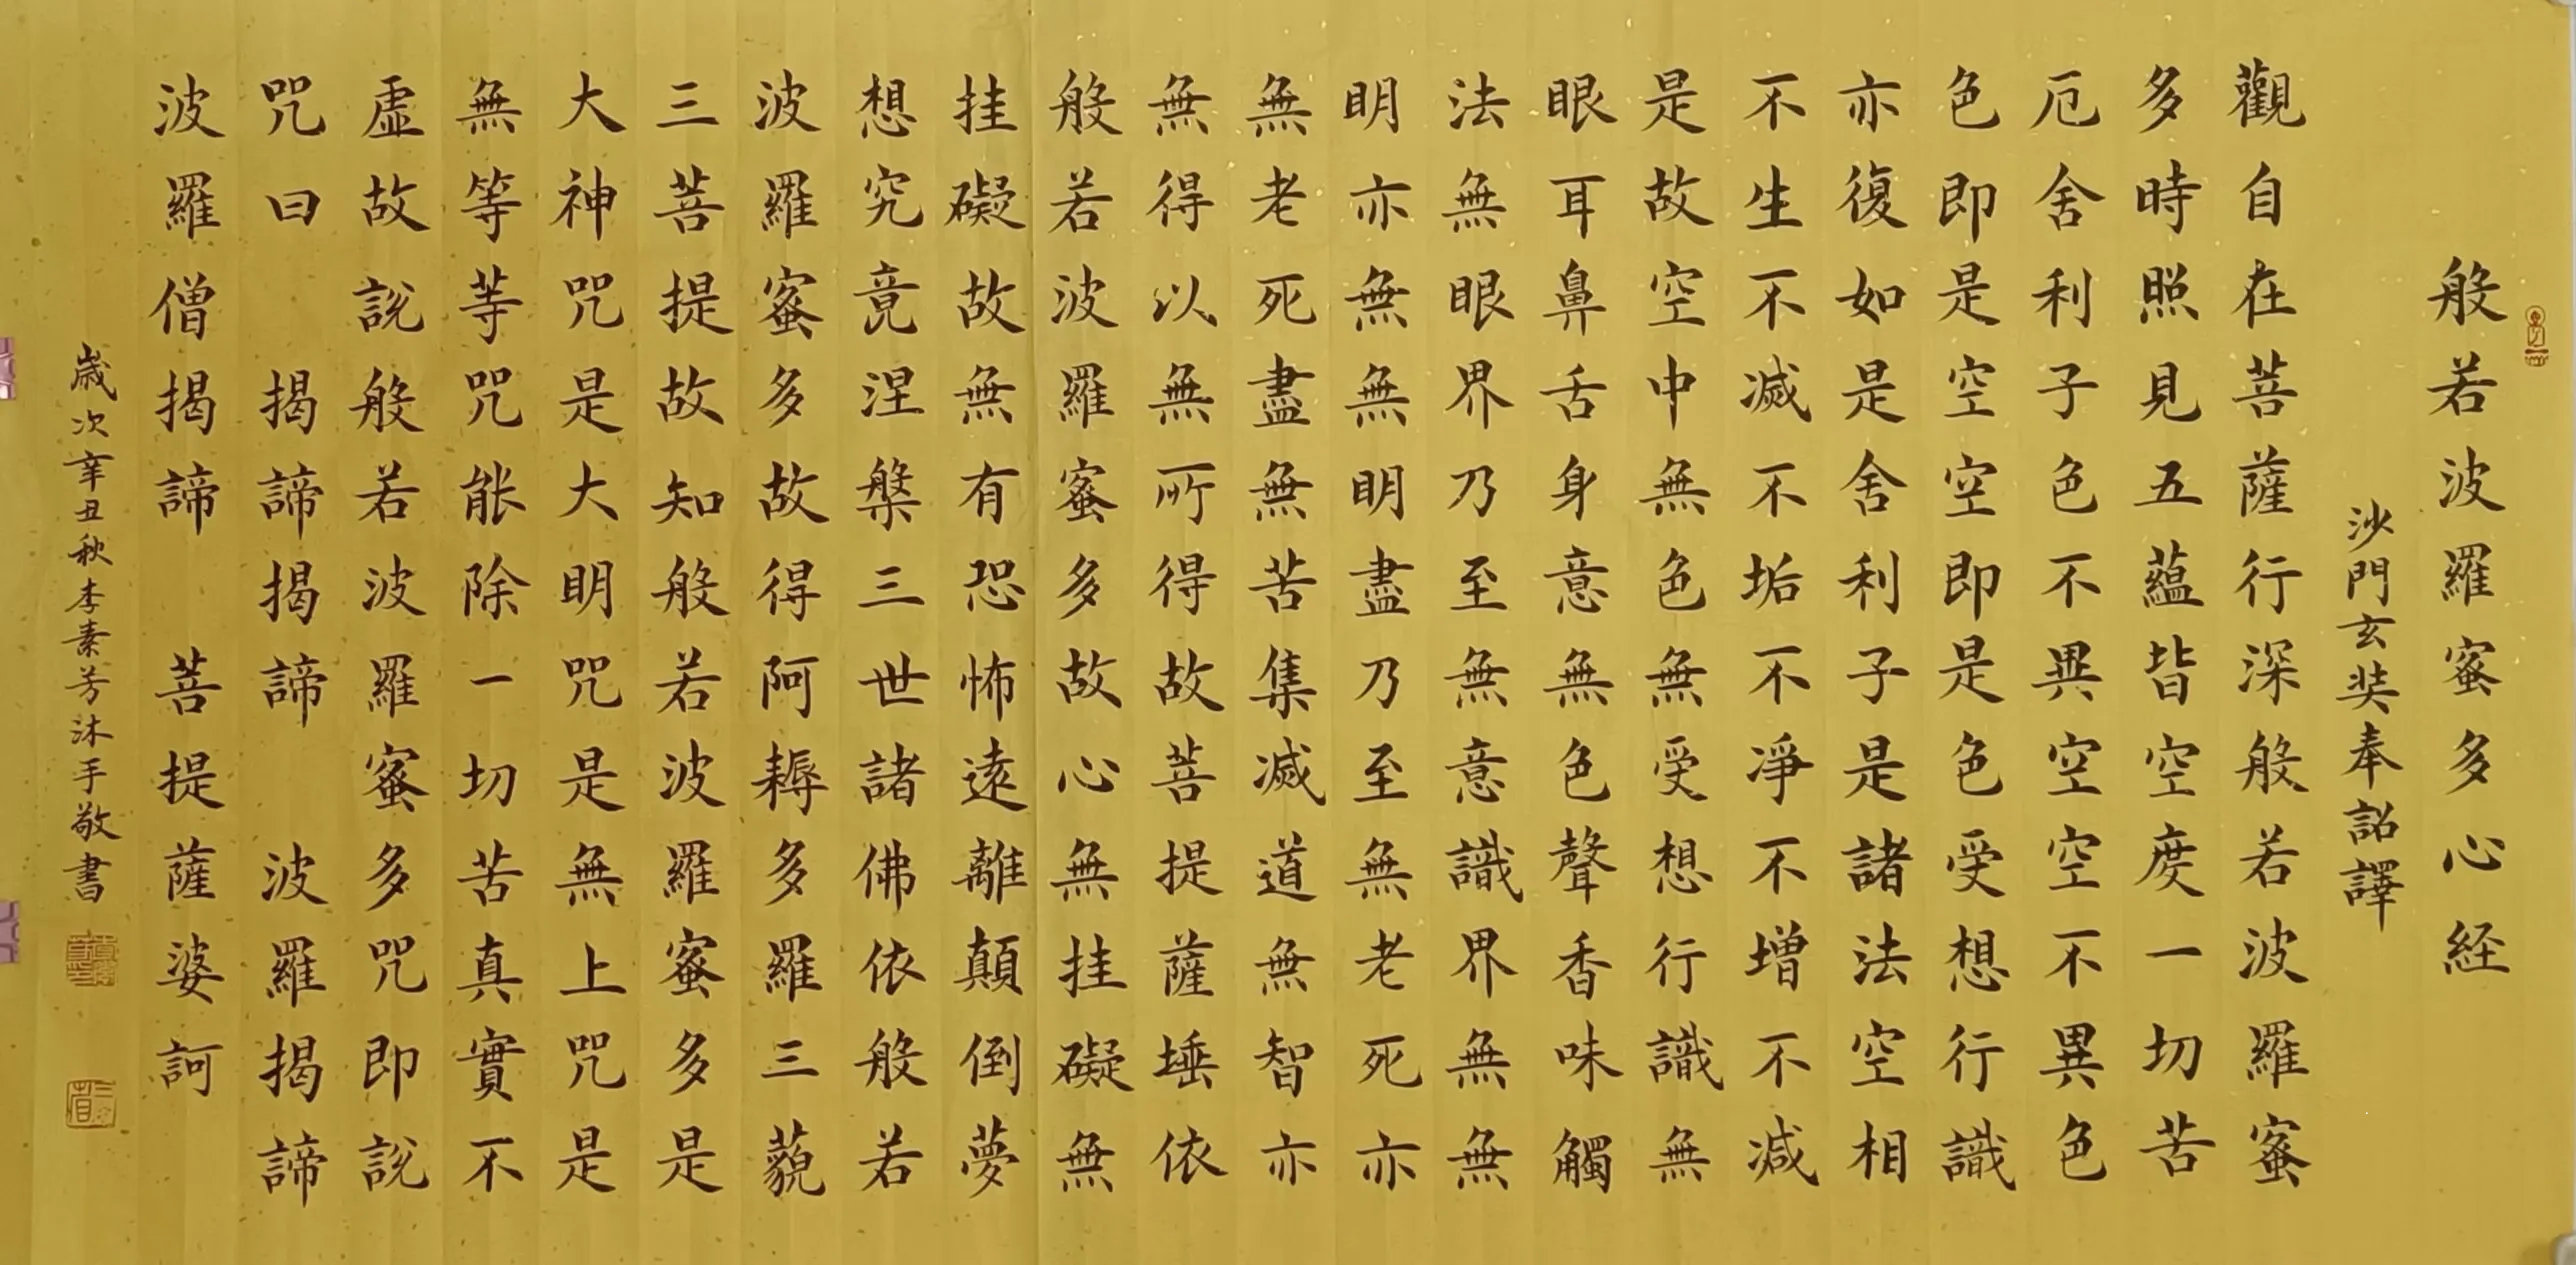 般若波羅蜜多心経
沙門玄奘奉詔譯
觀自在菩薩行深般若波羅蜜
多時照見五蘊皆空度一切苦
厄舍利子色不異空空不異色
色即是空空即是色受想行識
亦復如是舍利子是諸法空相
不生不滅不垢不淨不增不減
是故空中無色無受想行識無
眼耳鼻舌身意無色聲香味觸
法無眼界乃至無意識界無無
明亦無無明盡乃至無老死亦
無老死盡無苦集滅道無智亦
無得以無所得故菩提薩埵依
般若波羅蜜多故心無挂礙無
挂礙故無有恐怖遠離顛倒夢
想究竟涅槃三世諸佛依般若
波羅蜜多故得阿耨多羅三藐
三菩提故知般若波羅蜜多是
大神咒是大明咒是無上咒是
無等等咒能除一切苦真實不
虛故說般若波羅蜜多咒即說
咒曰 揭諦揭諦 波羅揭諦
波羅僧揭諦 菩提薩婆訶
歲次辛丑秋李素芳沐手敬書